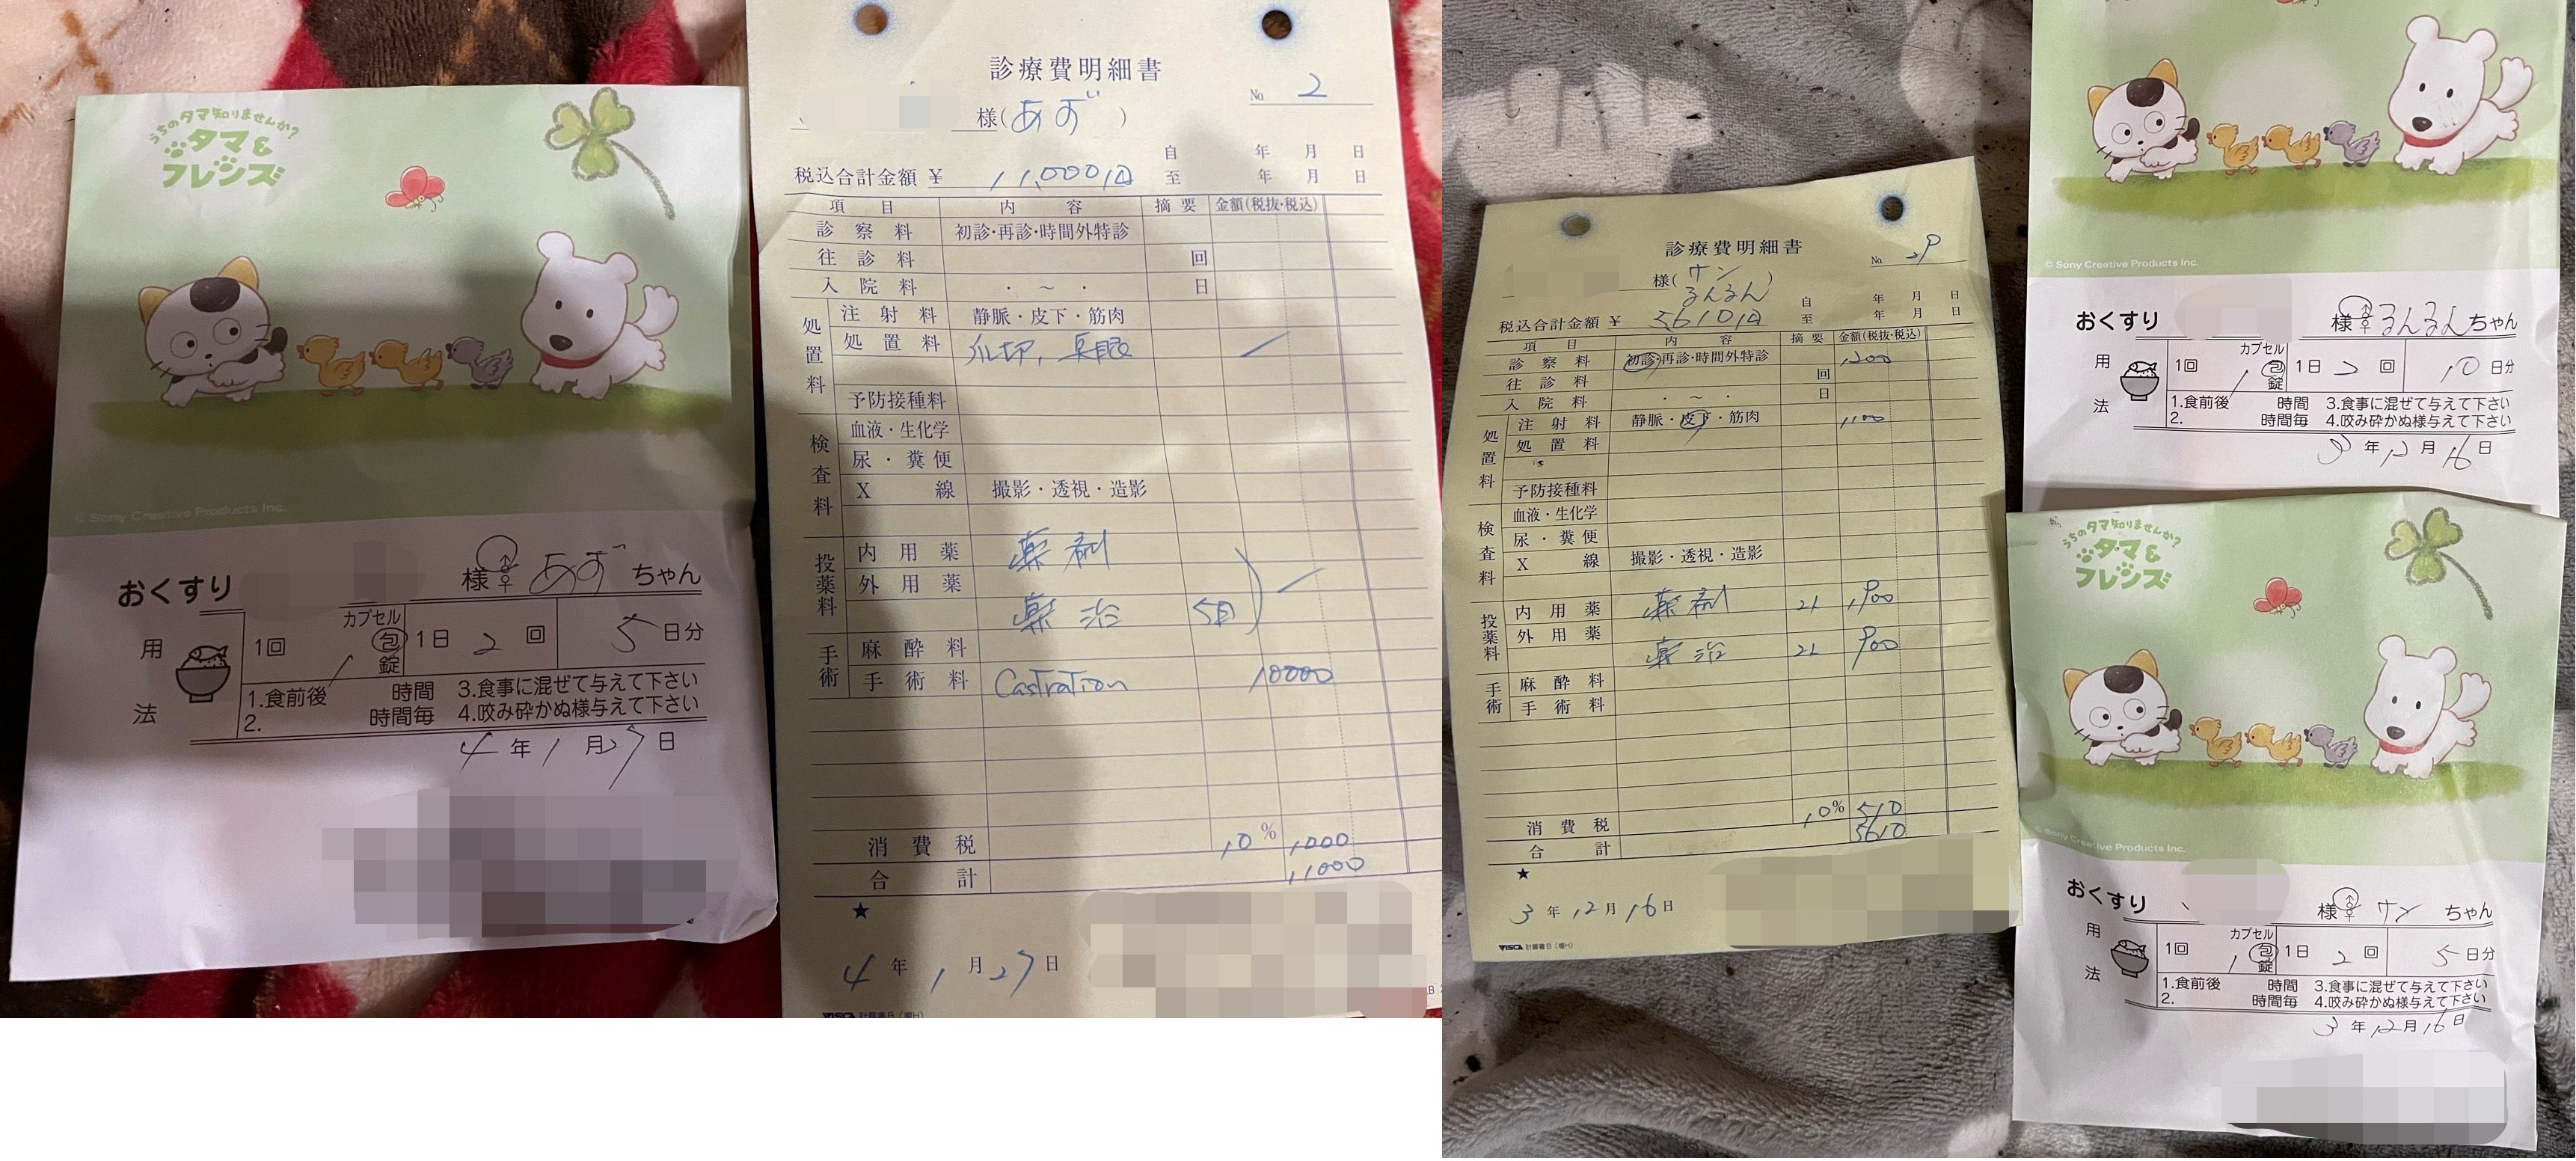 うちのタマ知りませんか?
タマ&
フレンズ
© Sony Creative Products Inc.
おくすり 様 ♂♀ あず ちゃん
用法
1回 1 カプセル 包 錠 1日 2 回 5 日分
1.食前後 時間 3.食事に混ぜて与えて下さい
2. 時間毎 4.咬み砕かぬ様与えて下さい
4 年 1 月 27 日
診療費明細書
No. 2
様(あず)
税込合計金額 ¥ 11,000円
自 年 月 日
至 年 月 日
項目 内容 摘要 金額(税抜・税込)
診察料 初診・再診・時間外特診
往診料 回
入院料 ・ ~ ・ 日
処置料
注射料 静脈・皮下・筋肉
処置料 爪切,
予防接種料
検査料
血液・生化学
尿・糞便
X線 撮影・透視・造影
投薬料
内用薬 薬剤
外用薬
薬治 5日
手術
麻酔料
手術料 Castration 10000
消費税 10% 1000
合計 11000
★
4 年 1 月 27 日
VISCA 計算書B(横H)
診療費明細書
No. 29
様(サン
るんるん)
税込合計金額 ¥ 5610円
自 年 月 日
至 年 月 日
項目 内容 摘要 金額(税抜・税込)
診察料 初診・再診・時間外特診 1200
往診料 回
入院料 ・ ~ ・ 日
処置料
注射料 静脈・皮下・筋肉 1100
処置料
予防接種料
検査料
血液・生化学
尿・糞便
X線 撮影・透視・造影
投薬料
内用薬 薬剤 21 1900
外用薬
薬治 21 900
手術
麻酔料
手術料
消費税 10% 510
合計 5610
★
3 年 12 月 16 日
VISCA 計算書B(横H)
© Sony Creative Products Inc.
おくすり 様 ♂♀ るんるん ちゃん
用法
1回 1 カプセル 包 錠 1日 2 回 10 日分
1.食前後 時間 3.食事に混ぜて与えて下さい
2. 時間毎 4.咬み砕かぬ様与えて下さい
3 年 12 月 16 日
うちのタマ知りませんか?
タマ&
フレンズ
© Sony Creative Products Inc.
おくすり 様 ♂♀ サン ちゃん
用法
1回 1 カプセル 包 錠 1日 2 回 5 日分
1.食前後 時間 3.食事に混ぜて与えて下さい
2. 時間毎 4.咬み砕かぬ様与えて下さい
3 年 12 月 16 日